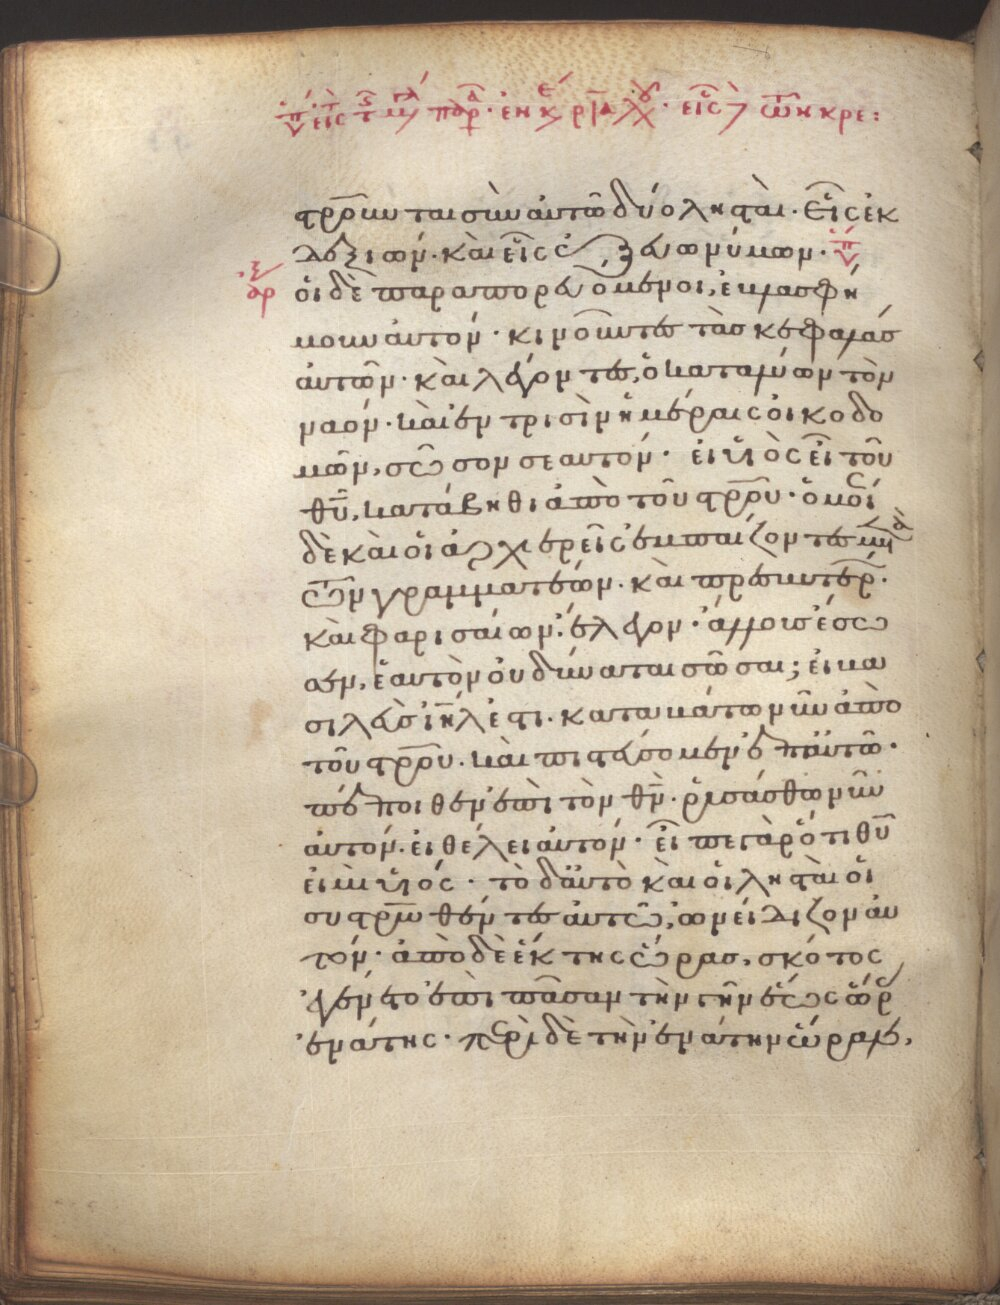 στ̅ρ̅οῦνται σὺν αὐτῶ δύο λησταί· Εἷς ἐκ
δεξιῶν· καὶ εἷς ἐξ εὐωνύμων·
ὁι δὲ παραπορευόμενοι, ἐβλασφή
μουν αὐτόν· κινοῦντες τὰς κεφαλὰς
αὐτῶν· καὶ λέγοντες, ὁ καταλύων τὸν
ναόν· καὶ ἐν τρισὶν ἡμέραις οἰκοδο
μῶν, σῶσον σεαυτόν· εἰ υἱὸς εἶ τοῦ
θ̅υ̅, κατάβηθι ἀπὸ τοῦ στ̅ρ̅οῦ· ὁμοί
δὲ καὶ οἱ ἀρχιερεῖς ἐμπαίζοντες μετὰ
τῶν γραμματέων· καὶ πρεσβυτέρ·
καὶ φαρισαίων· ἔλεγον· ἄλλους ἔσω
σεν, ἑαυτὸν οὐ δύναται σῶσαι; εἰ βα
σιλεὺς ι̅η̅λ ἐστι· καταβάτω νῦν ἀπὸ
τοῦ στ̅ρ̅οῦ· καὶ πιστεύσομεν ἐπ' αὐτῶ·
πέποιθεν ἐπὶ τὸν θ̅ν̅· ῥυσάσθω νῦν
αὐτόν· εἰ θέλει αὐτόν· εἶπε γὰρ ὅτι θ̅υ̅
εἰμι υἱός· τὸ δ' αὐτὸ καὶ οἱ λησταὶ οἱ
συστ̅ρ̅ωθέντες αὐτῶ, ὠνείδιζον αὐ
τόν· ἀπὸ δὲ ἕκτης ὥρας, σκότος
ἐγένετο ἐπὶ πᾶσαν τὴν γῆν ἕως ὥρ
ἐνάτης· περὶ δὲ τὴν ἐνάτην ὥραν,